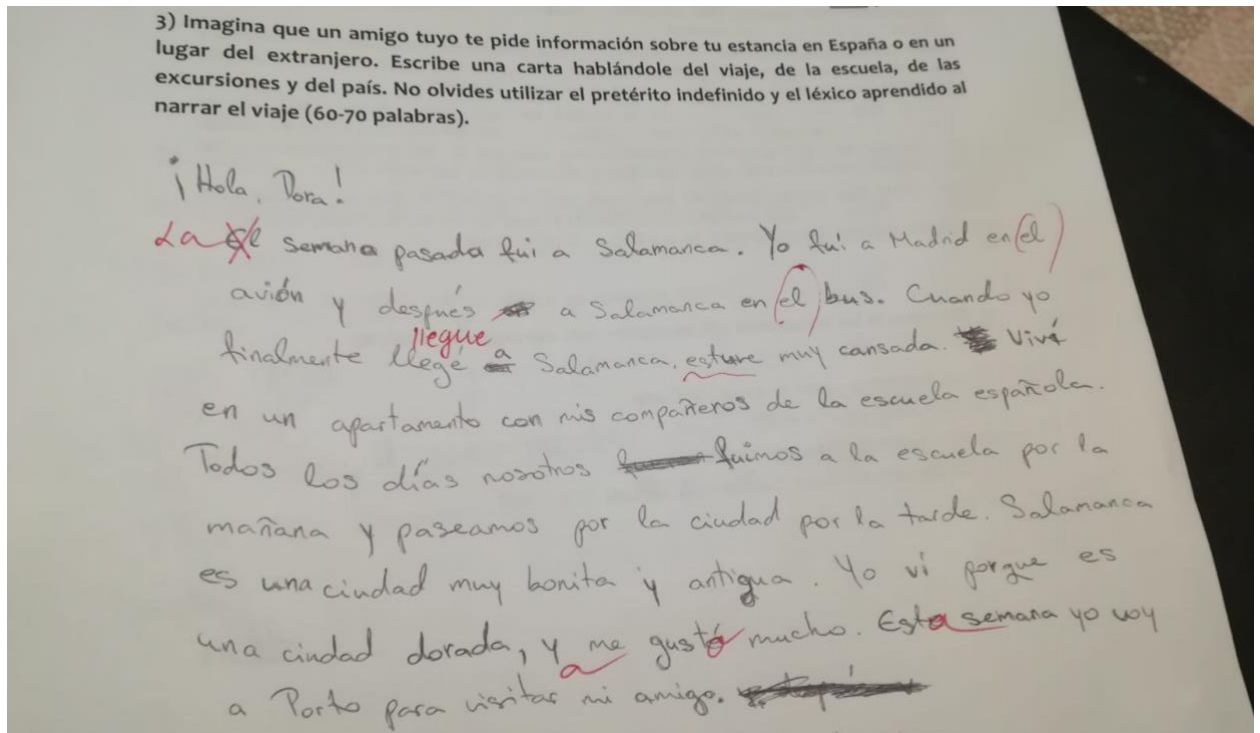 3) Imagina que un amigo tuyo te pide información sobre tu estancia en España o en un
lugar del extranjero. Escribe una carta hablándole del viaje, de la escuela, de las
excursiones y del país. No olvides utilizar el pretérito indefinido y el léxico aprendido al
narrar el viaje (60-70 palabras).
¡Hola, Dora!
La El semana pasada fui a Salamanca. Yo fui a Madrid en (el)
avión y después a Salamanca en (el) bus. Cuando yo
llegue
finalmente llegé a Salamanca, estuve muy cansada. Viví
en un apartamento con mis compañeros de la escuela española.
Todos los días nosotros fuimos a la escuela por la
mañana y paseamos por la ciudad por la tarde. Salamanca
es una ciudad muy bonita y antigua. Yo vi porque es
una ciudad dorada, y me gustó mucho. Esta semana yo voy
a
a Porto para visitar mi amigo.